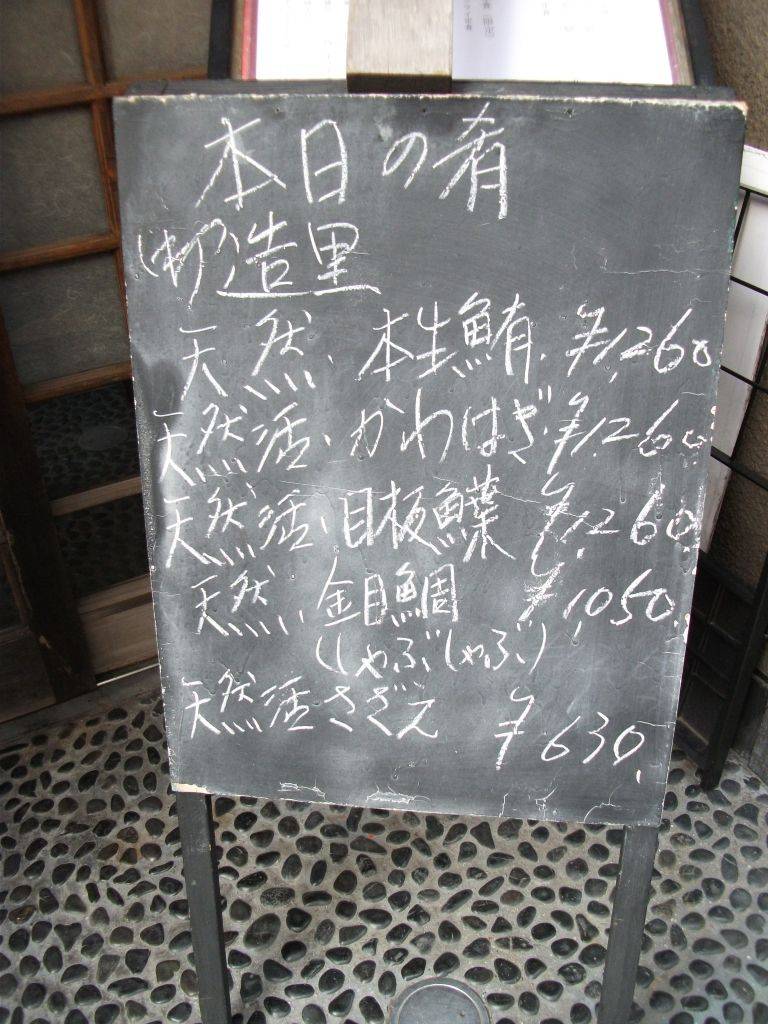 本日の肴
(お)造里
天然、本生鮪、¥1,260
天然活、かわはぎ ¥1,260
天然活、目板鰈 ¥1,260
天然、金目鯛 ¥1,050.
(しゃぶしゃぶ)
天然活さざえ ¥630.